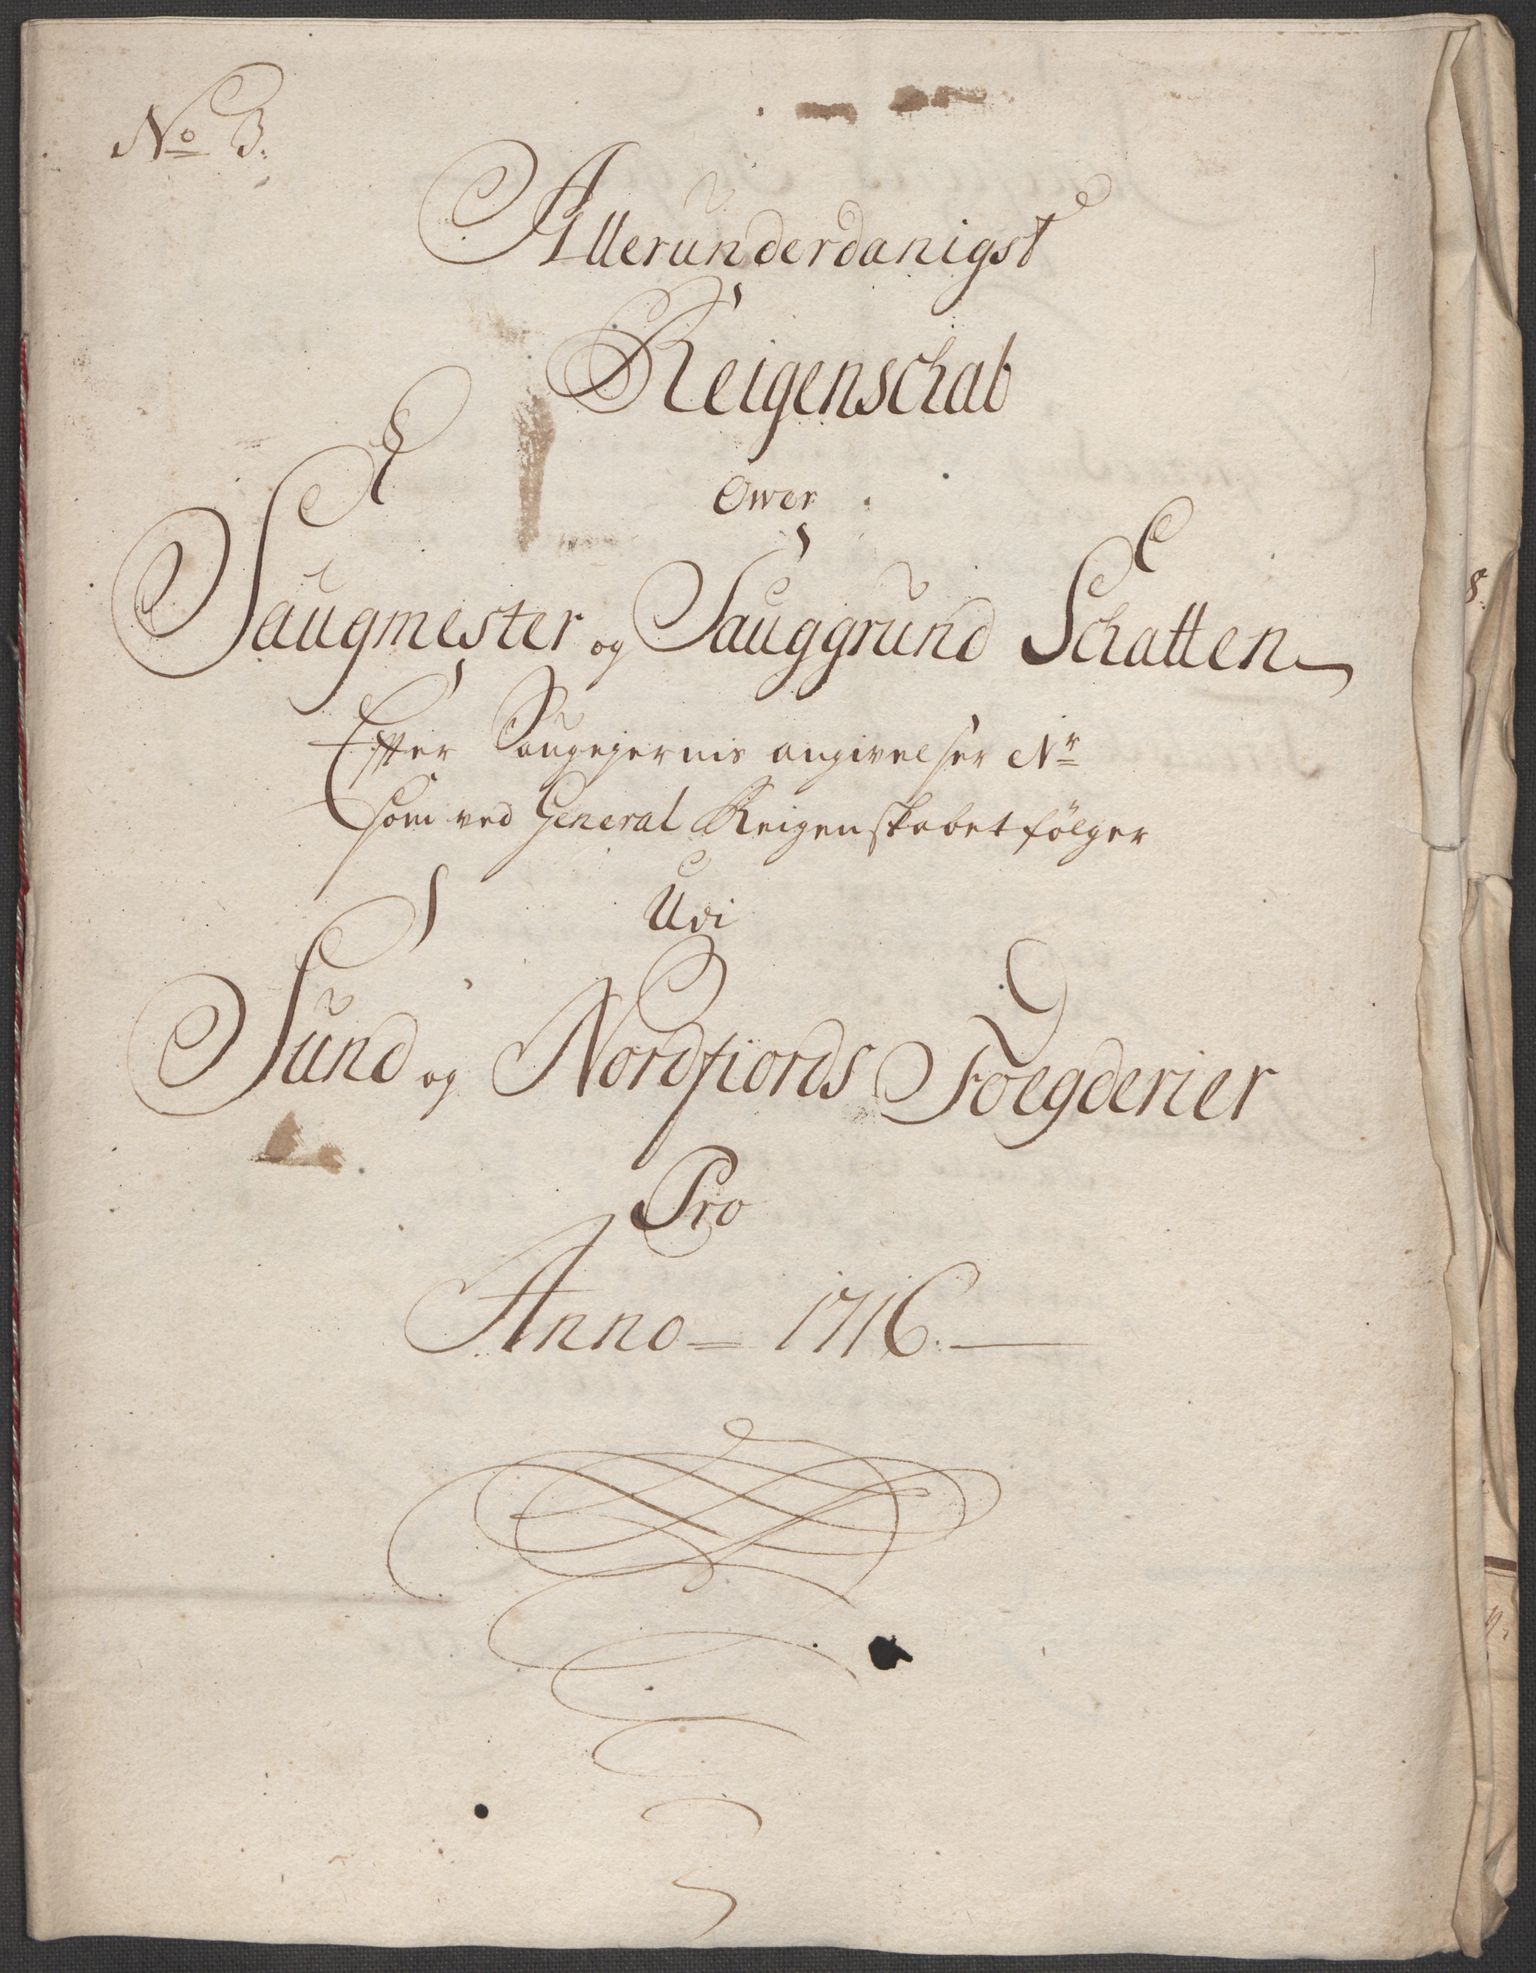 No 3.
Allerunderdanigst
Reigenschab
Over
Saugmester og Sauggrund Schatten
Efter Saugejernis angivelser Nr
som ved General Reigenskabet følger
Udi
Sund og Nordfiords Foegderier
Pro
Anno 1716.
8.